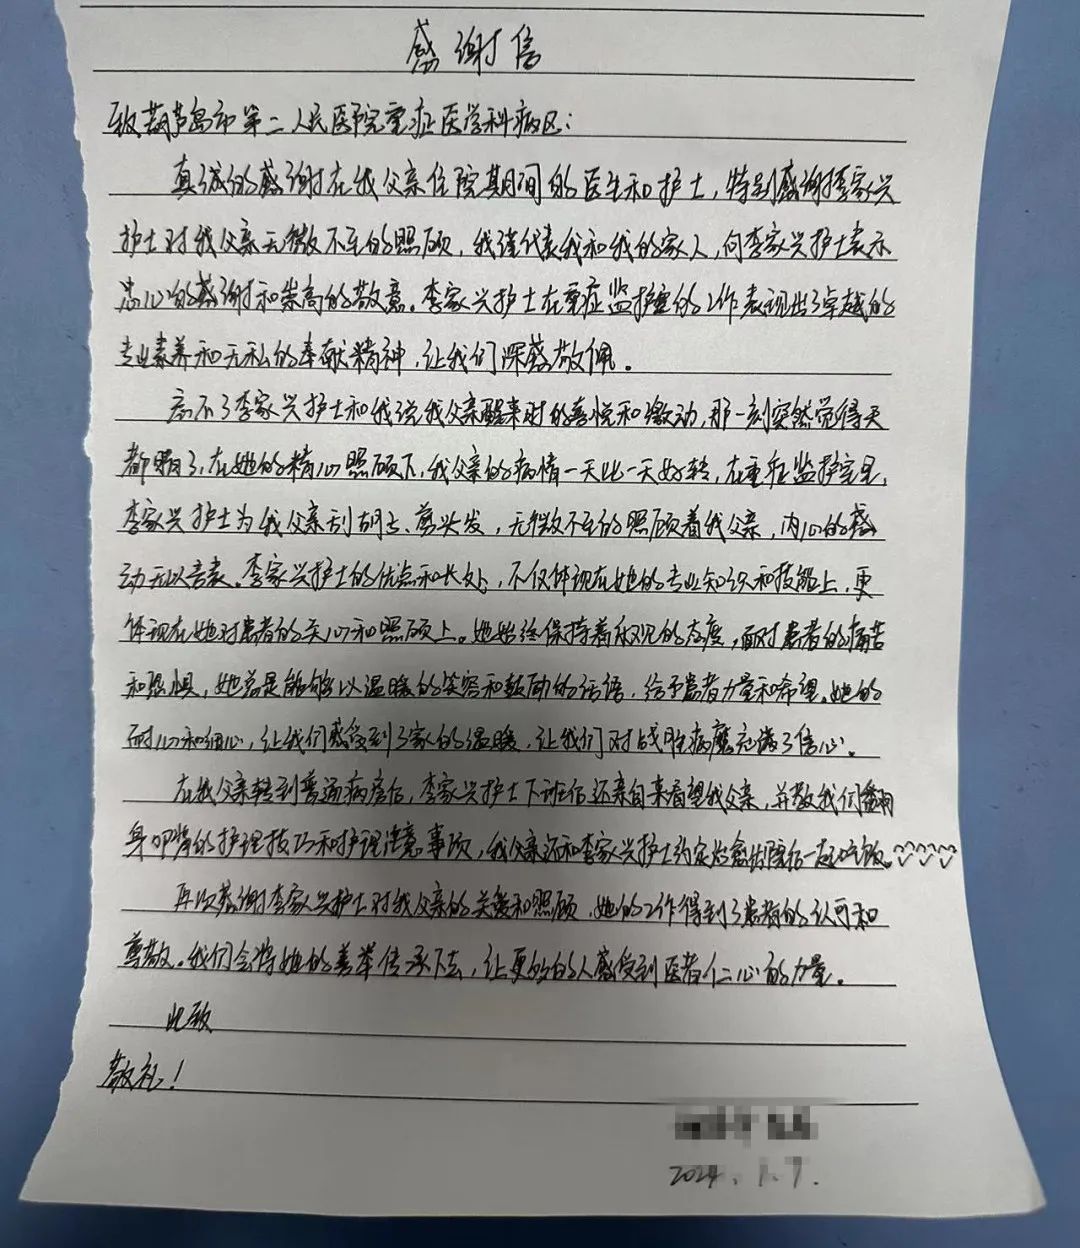 感谢信
致葫芦岛市第二人民医院重症医学科病区：
真诚的感谢在我父亲住院期间的医生和护士，特别感谢李家兴
护士对我父亲无微不至的照顾，我谨代表我和我的家人，向李家兴护士表示
忠心的感谢和崇高的敬意。李家兴护士在重症监护室的工作表现出了卓越的
专业素养和无私的奉献精神，让我们深感敬佩。
忘不了李家兴护士和我说我父亲醒来时的喜悦和激动，那一刻突然觉得天
都晴了，在她的精心照顾下，我父亲的病情一天比一天好转，在重症监护室里，
李家兴护士为我父亲刮胡子、剪头发，无微不至的照顾着我父亲，内心的感
动无以言表。李家兴护士的优点和长处，不仅体现在她的专业知识和技能上，更
体现在她对患者的关心和照顾上。她始终保持着乐观的态度，面对患者的痛苦
和恐惧，她总是能够以温暖的笑容和鼓励的话语，给予患者力量和希望。她的
耐心和细心，让我们感受到了家的温暖，让我们对战胜病魔充满了信心。
在我父亲转到普通病房后，李家兴护士下班后还亲自来看望我父亲，并教我们翻
身叩背的护理技巧和护理注意事项，我父亲还和李家兴护士约定治愈出院后一起吃饭。
再次感谢李家兴护士对我父亲的关爱和照顾，她的工作得到了患者的认可和
尊敬。我们会将她的善举传承下去，让更多的人感受到医者仁心的力量。
此致
敬礼！
2024.1.7.